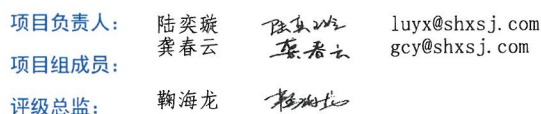 项目负责人： 陆奕璇 陆奕璇 luyx@shxsj.com
龚春云 龚春云 gcy@shxsj.com
项目组成员：
评级总监： 鞠海龙 鞠海龙